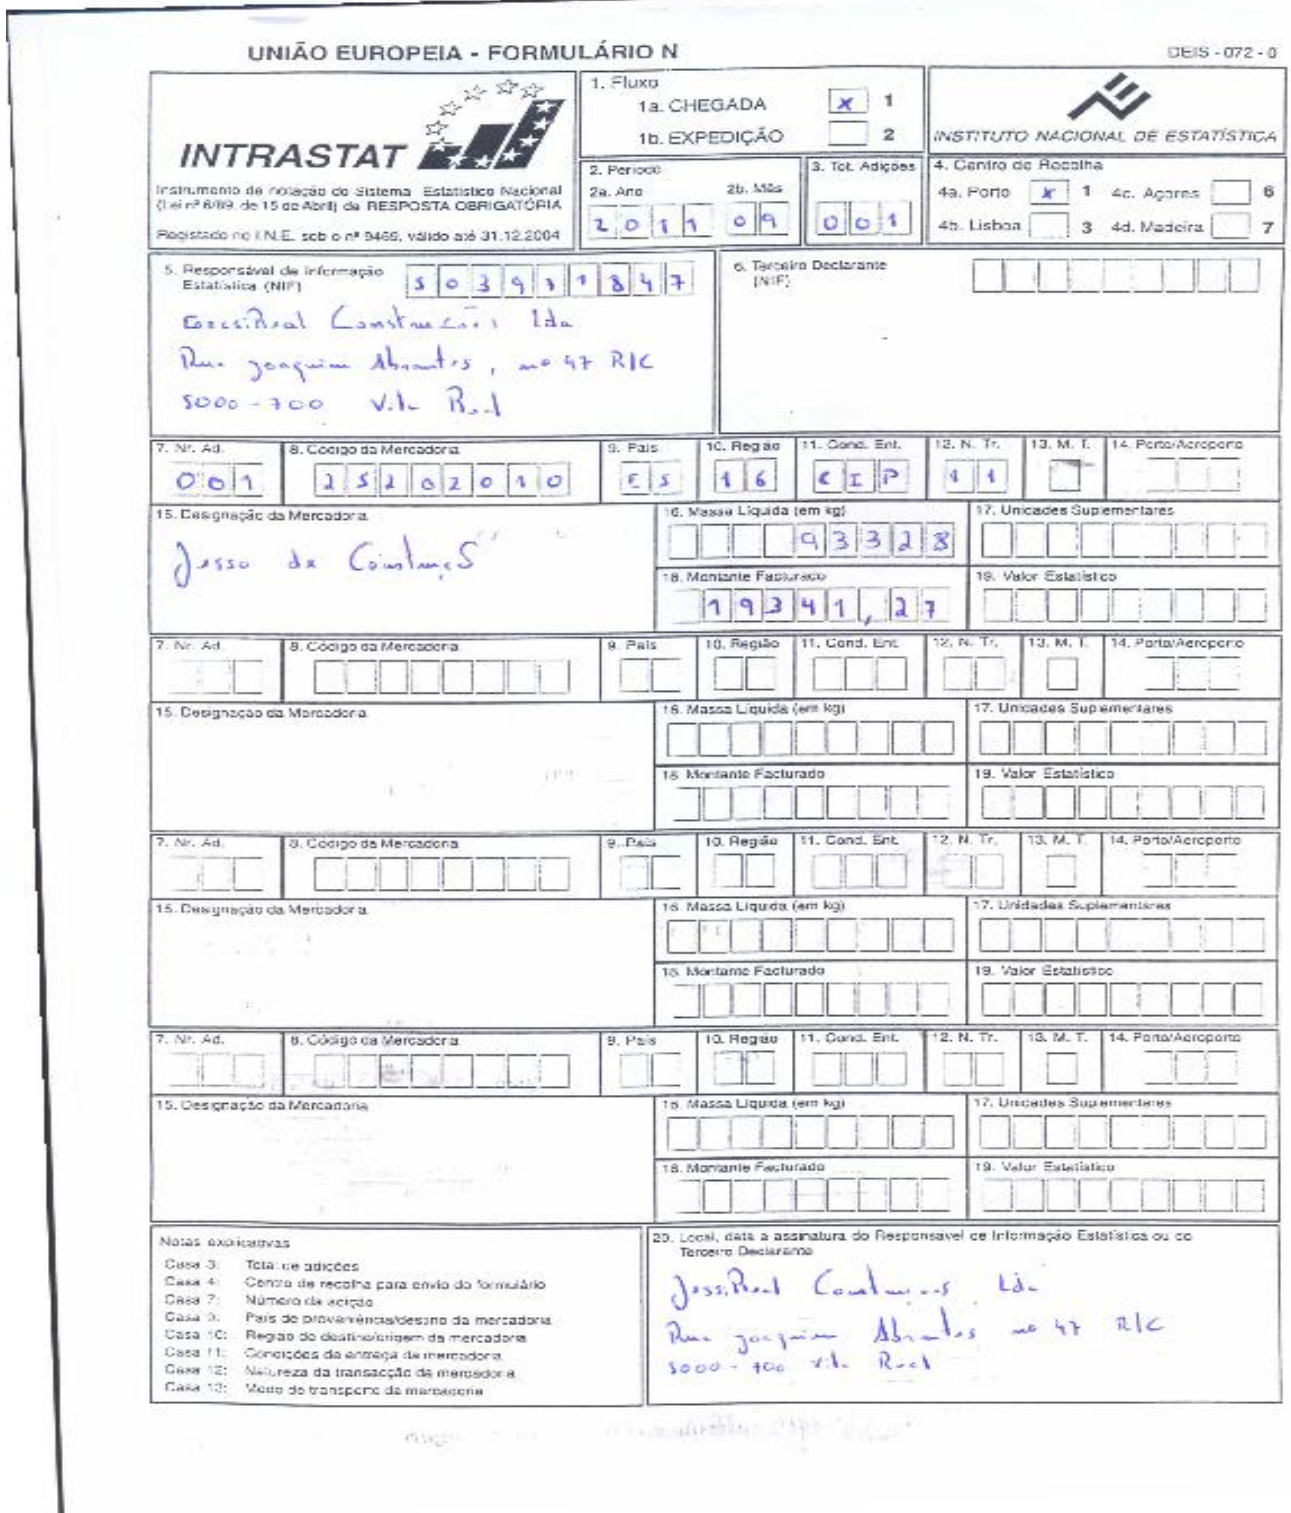 UNIÃO EUROPEIA - FORMULÁRIO N
DEIS - 072 - 0
INTRASTAT
Instrumento de notação do Sistema Estatístico Nacional
(Lei nº 6/89, de 15 de Abril) de RESPOSTA OBRIGATÓRIA
Registado no I.N.E. sob o nº 9469, válido até 31.12.2004
1. Fluxo
1a. CHEGADA x 1
1b. EXPEDIÇÃO 2
INSTITUTO NACIONAL DE ESTATÍSTICA
2. Período
2a. Ano 2b. Mês
2011 09
3. Tot. Adições
001
4. Centro de Recolha
4a. Porto x 1 4c. Açores 6
4b. Lisboa 3 4d. Madeira 7
5. Responsável de Informação
Estatística (NIF) 503971847
Construções Lda
Rua Joaquim Abrantes, nº 47 R/C
5000-700 Vila Real
6. Terceiro Declarante
(NIF)
7. Nr. Ad. 8. Código da Mercadoria 9. País 10. Região 11. Cond. Ent. 12. N. Tr. 13. M. T. 14. Porto/Aeroporto
001 25202010 ES 16 CIP 11
15. Designação da Mercadoria
Jesso de
16. Massa Líquida (em kg)
93328
17. Unidades Suplementares
18. Montante Facturado
19341,27
19. Valor Estatístico
7. Nr. Ad. 8. Código da Mercadoria 9. País 10. Região 11. Cond. Ent. 12. N. Tr. 13. M. T. 14. Porto/Aeroporto
15. Designação da Mercadoria 16. Massa Líquida (em kg) 17. Unidades Suplementares
18. Montante Facturado 19. Valor Estatístico
7. Nr. Ad. 8. Código da Mercadoria 9. País 10. Região 11. Cond. Ent. 12. N. Tr. 13. M. T. 14. Porto/Aeroporto
15. Designação da Mercadoria 16. Massa Líquida (em kg) 17. Unidades Suplementares
18. Montante Facturado 19. Valor Estatístico
7. Nr. Ad. 8. Código da Mercadoria 9. País 10. Região 11. Cond. Ent. 12. N. Tr. 13. M. T. 14. Porto/Aeroporto
15. Designação da Mercadoria 16. Massa Líquida (em kg) 17. Unidades Suplementares
18. Montante Facturado 19. Valor Estatístico
Notas explicativas
Casa 3: Total de adições
Casa 4: Centro de recolha para envio do formulário
Casa 7: Número da adição
Casa 9: País de proveniência/destino da mercadoria
Casa 10: Região de destino/origem da mercadoria
Casa 11: Condições de entrega da mercadoria
Casa 12: Natureza da transacção da mercadoria
Casa 13: Modo de transporte da mercadoria
20. Local, data e assinatura do Responsável de Informação Estatística ou do
Terceiro Declarante
Construções Lda
Rua Joaquim Abrantes nº 47 R/C
5000-700 Vila Real